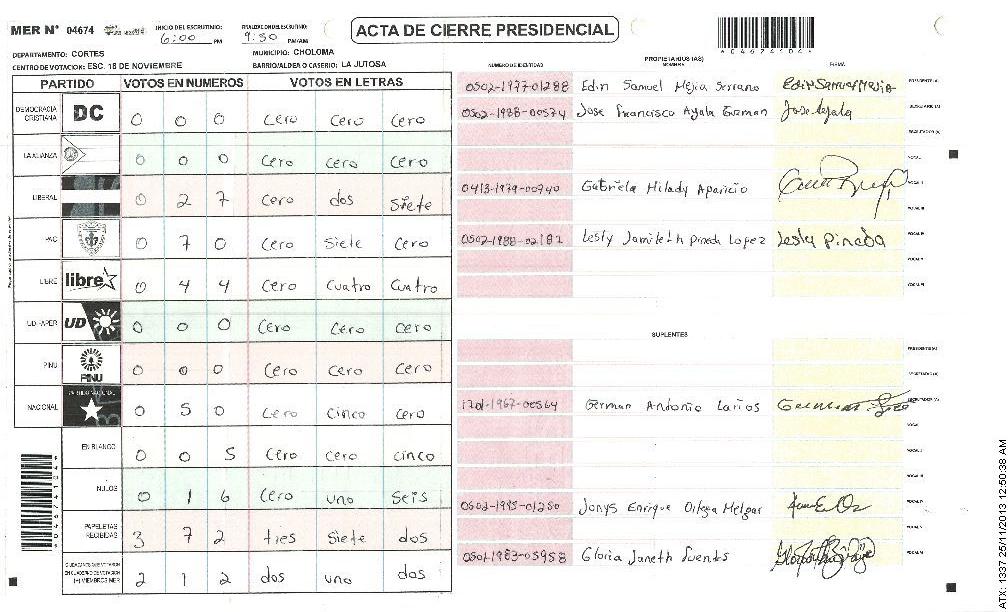 MER N° 04674
INICIO DEL ESCRUTINIO:
6:00 PM
FINALIZACION DEL ESCRUTINIO:
9:30 PM/AM
ACTA DE CIERRE PRESIDENCIAL
DEPARTAMENTO: CORTES
MUNICIPIO: CHOLOMA
CENTRO DE VOTACION: ESC. 18 DE NOVIEMBRE
BARRIO/ALDEA O CASERIO: LA JUTOSA
PARTIDO VOTOS EN NUMEROS VOTOS EN LETRAS
DEMOCRACIA CRISTIANA DC 0 0 0 Cero Cero Cero
LA ALIANZA 0 0 0 Cero Cero Cero
LIBERAL 0 2 7 Cero dos Siete
PAC 0 7 0 Cero Siete Cero
LIBRE libre 0 4 4 Cero Cuatro Cuatro
UD-FAPER UD 0 0 0 Cero Cero Cero
PINU PINU 0 0 0 Cero Cero Cero
NACIONAL PARTIDO NACIONAL 0 5 0 Cero Cinco Cero
EN BLANCO 0 0 5 Cero Cero cinco
NULOS 0 1 6 Cero uno Seis
PAPELETAS RECIBIDAS 3 7 2 tres Siete dos
CIUDADANOS QUE VOTARON EN CUADERNO DE VOTACION (+) MIEMBROS MER 2 1 2 dos uno dos
PROPIETARIOS (AS)
NUMERO DE IDENTIDAD NOMBRE FIRMA
0502-1977-01288 Edin Samuel Mejia Serrano Edin Samuel Mejia PRESIDENTE (A)
0502-1988-00574 Jose Francisco Ayala Guzman Jose Ayala SECRETARIO (A)
ESCRUTADOR (A)
VOCAL I
0413-1979-00740 Gabriela Hilady Aparicio VOCAL II
VOCAL III
0502-1988-02182 Lesly Jamileth Pineda Lopez Lesly Pineda VOCAL IV
VOCAL V
VOCAL VI
SUPLENTES
PRESIDENTE (A)
SECRETARIO (A)
1701-1967-00564 German Antonio Larios ESCRUTADOR (A)
VOCAL I
VOCAL II
VOCAL III
0502-1995-01250 Jonys Enrique Ortega Melgar VOCAL IV
VOCAL V
0501-1983-05958 Gloria Janeth Fuentes VOCAL VI
ATX: 1337 25/11/2013 12:50:38 AM